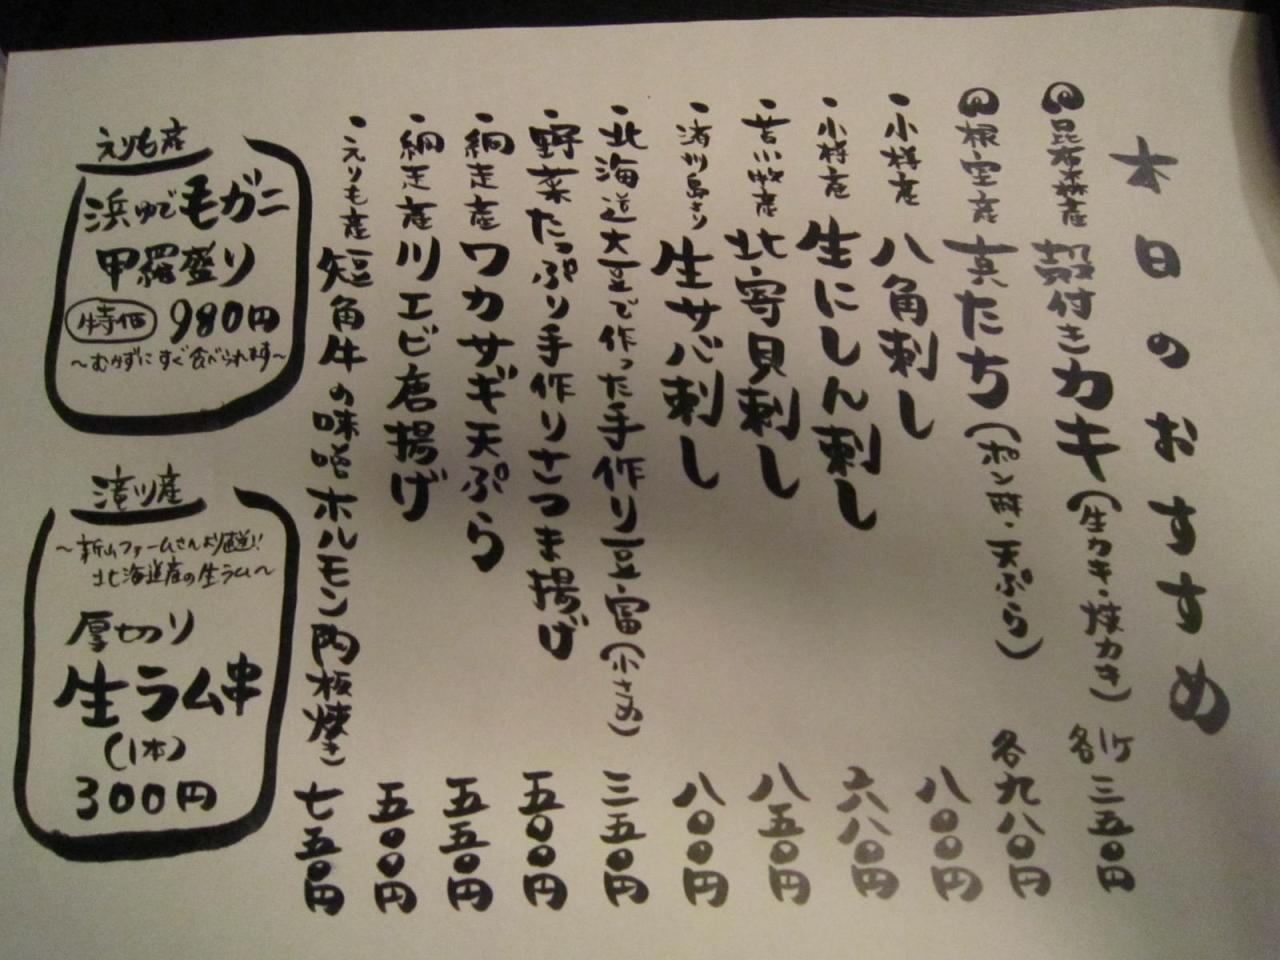 本日のおすすめ
昆布森産 殻付きカキ(生カキ・焼カキ) 各1ケ 三五〇円
根室産 真たち(ポン酢・天ぷら) 各九八〇円
・小樽産 八角刺し 八〇〇円
・小樽産 生にしん刺し 六八〇円
・苫小牧産 北寄貝刺し 八五〇円
・清川島さり 生サバ刺し 八〇〇円
・北海道大豆で作った手作り豆富(小さめ) 三五〇円
・野菜たっぷり手作りさつま揚げ 五〇〇円
・網走産 ワカサギ天ぷら 五五〇円
・網走産 川エビ唐揚げ 五〇〇円
・えりも産 短角牛の味噌ホルモン陶板焼き 七五〇円
えりも産
浜ゆで毛ガニ
甲羅盛り
特価 980円
〜むかずにすぐ食べられます〜
滝川産
〜新山ファームさんより直送!!
北海道産の生ラム〜
厚切り
生ラム串
(1本)
300円